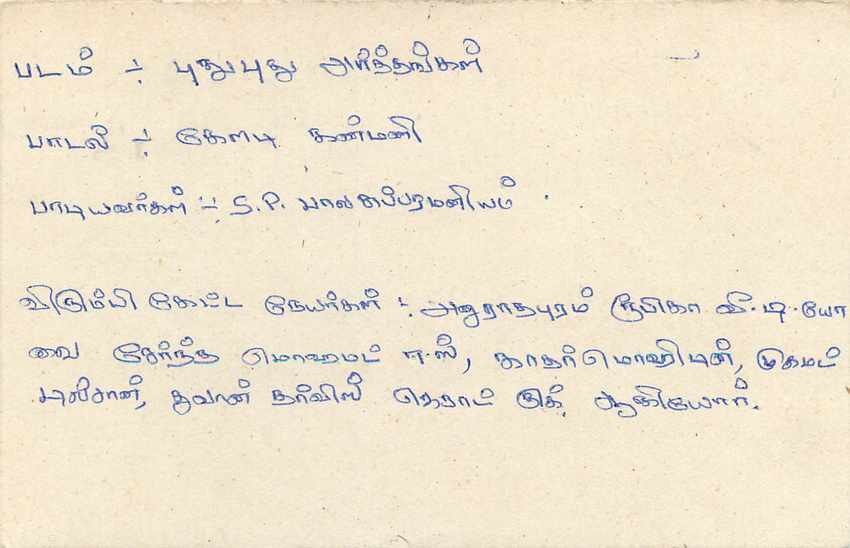 படம் ÷ புதுபுது அர்த்தங்கள்
பாடல் ÷ கேளடி கண்மணி
பாடியவர்கள் ÷ S.P. பாலசுப்பரமணியம்
விரும்பி கேட்ட நேயர்கள் ÷ அனுராதபுரம் ரூபிகா வீ.டி.யோ
வை சேர்ந்த மொஹமட் ஈ.ஸ், காதர்மொஹிடீன், முகமட்
புல்சான், துவான் தர்விஸ் ஆகியோர்.